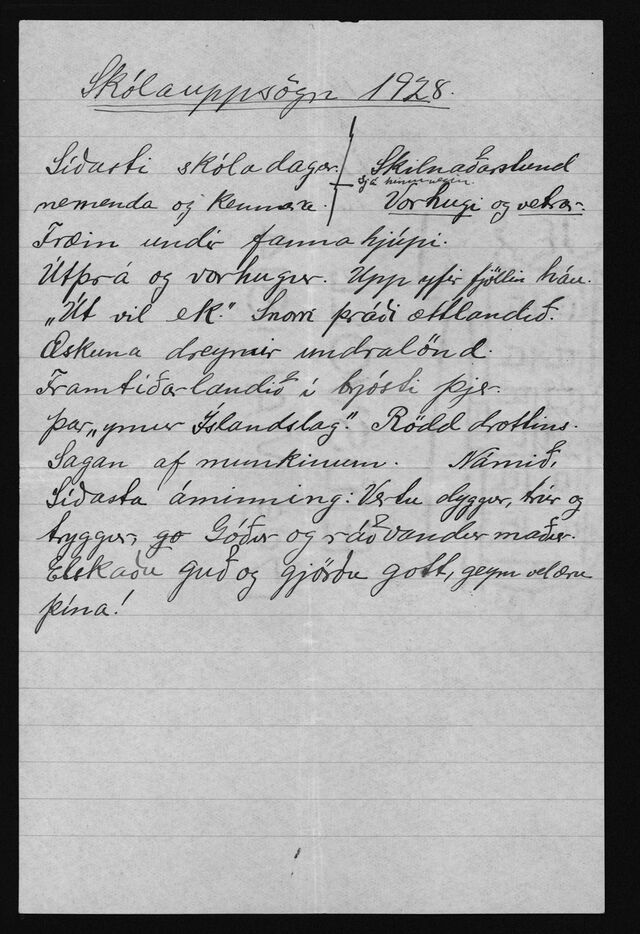 Skólauppsögn 1928.
Síðasti skóladagur. Skilnaðarstund
Sjá hinumegin.
nemenda og kennara. Vorhugi og vetrar-
Fræin undir fannahjúpi.
Útþrá og vorhugur. Upp yfir fjöllin háu.
„Út vil ek." Snorri þráði ættlandið.
Æskuna dreymir undralönd.
Framtíðarlandið í brjósti þjer.
þar „ymur Íslandslag". Rödd drottins.
Sagan af munkinum. Námið.
Síðasta áminning: Vertu dyggur, trúr og
tryggur, go Góður og ráðvandur maður.
Elskaðu guð og gjörðu gott, geym vel æru
þína!